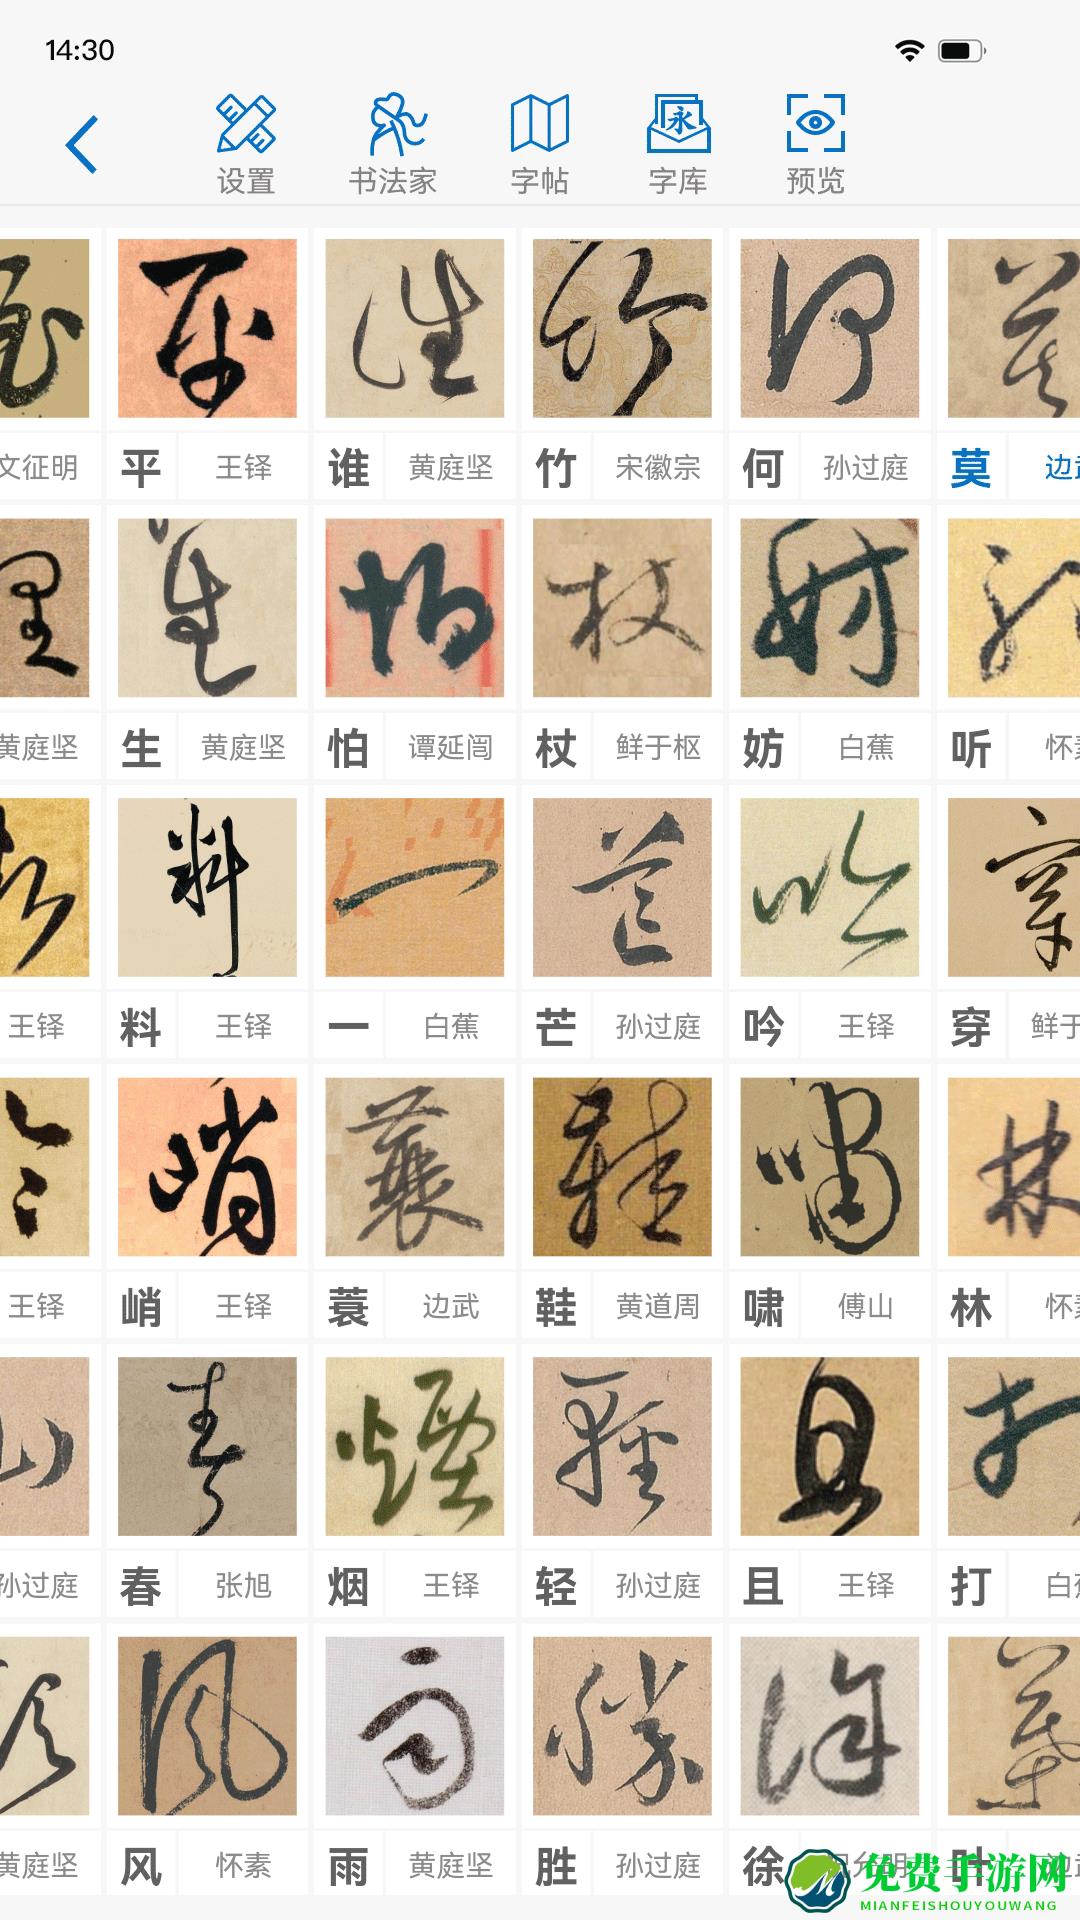 14:30
设置 书法家 字帖 字库 预览
文征明 平 王铎 谁 黄庭坚 竹 宋徽宗 何 孙过庭 莫 边
黄庭坚 生 黄庭坚 怕 谭延闿 杖 鲜于枢 妨 白蕉 听 怀
王铎 料 王铎 一 白蕉 芒 孙过庭 吟 王铎 穿 鲜于
王铎 峭 王铎 蓑 边武 鞋 黄道周 啸 傅山 林 怀
孙过庭 春 张旭 烟 王铎 轻 孙过庭 且 王铎 打 白
黄庭坚 风 怀素 雨 黄庭坚 胜 孙过庭 徐 叶
免费手游网
MIANFEISHOUYOUWANG